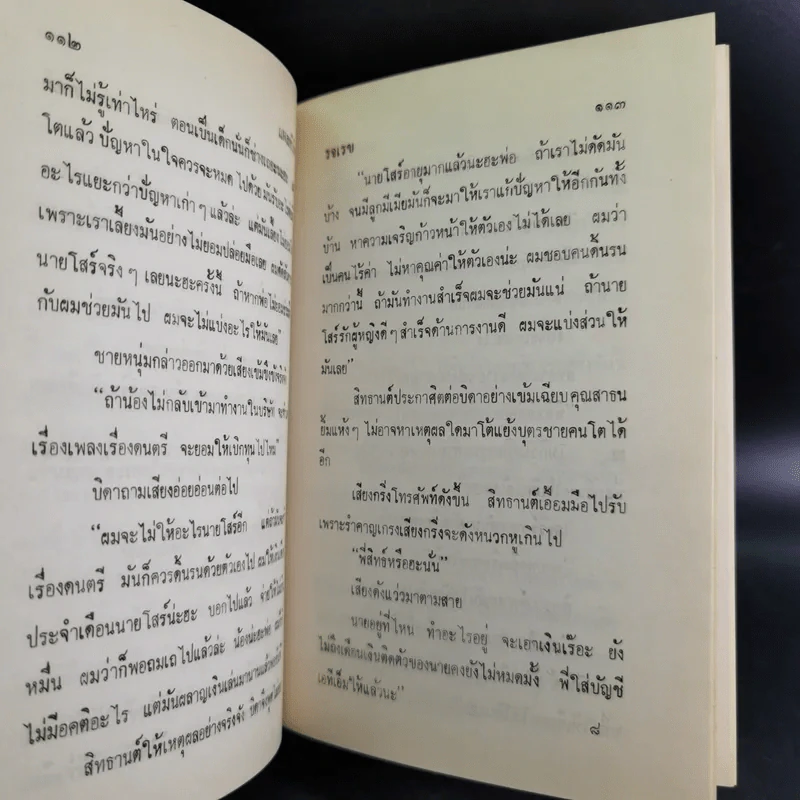 ๑๑๒
มาก็ไม่รู้เท่าไหร่ ตอนเป็นเด็กนั่นก็ช่าง
โตแล้ว ปัญหาในใจควรจะหมดไปด้วย
อะไรแยะกว่าปัญหาเก่าๆ แล้วล่ะ แต่มัน
เพราะเราเลี้ยงมันอย่างไม่ยอมปล่อยมือเลย
นายโสร์จริงๆ เลยนะฮะครั้งนี้ ถ้าหากพ่อไม่
กับผมช่วยมันไป ผมจะไม่แบ่งอะไรให้มันเลย”
ชายหนุ่มกล่าวออกมาด้วยเสียงเข้มขึงขัง
“ถ้าน้องไม่กลับเข้ามาทำงานในบริษัท
เรื่องเพลงเรื่องดนตรี จะยอมให้เบิกทุนไปไหม”
บิดาถามเสียงอ่อยอ่อนต่อไป
“ผมจะไม่ให้อะไรนายโสร์อีก
เรื่องดนตรี มันก็ควรดิ้นรนด้วยตัวเองไป ผมให้เงิน
ประจำเดือนนายโสร์น่ะฮะ บอกไปแล้ว จ่ายให้
หมื่น ผมว่าก็พอถมเถไปแล้วล่ะ น้องน่ะฮะพ่อ
ไม่มีอคติอะไร แต่มันผลาญเงินเล่นมานานแล้ว
สิทธานต์ให้เหตุผลอย่างจริงจัง
๑๑๓
รจเรข
“นายโสร์อายุมากแล้วนะฮะพ่อ ถ้าเราไม่ดัดมัน
บ้าง จนมีลูกมีเมียมันก็จะมาให้เราแก้ปัญหาให้อีกกันทั้ง
บ้าน หาความเจริญก้าวหน้าให้ตัวเองไม่ได้เลย ผมว่า
เป็นคนไร้ค่า ไม่หาคุณค่าให้ตัวเองน่ะ ผมชอบคนดิ้นรน
มากกว่านี้ ถ้ามันทำงานสำเร็จผมจะช่วยมันแน่ ถ้านาย
โสร์รักผู้หญิงดีๆ สำเร็จด้านการงานดี ผมจะแบ่งส่วนให้
มันเลย”
สิทธานต์ประกาศิตต่อบิดาอย่างเข้มเฉียบ คุณสาธน
ยิ้มแห้งๆ ไม่อาจหาเหตุผลใดมาโต้แย้งบุตรชายคนโตได้
อีก
เสียงกริ่งโทรศัพท์ดังขึ้น สิทธานต์เอื้อมมือไปรับ
เพราะรำคาญเกรงเสียงกริ่งจะดังหนวกหูเกินไป
“พี่สิทธ์หรือฮะนั่น”
เสียงดังแว่วมาตามสาย
นายอยู่ที่ไหน ทำอะไรอยู่ จะเอาเงินเร๊อะ ยัง
ไม่ถึงเดือนเงินติดตัวของนายคงยังไม่หมดมั้ง พี่ใส่บัญชี
เอทีเอ็มให้แล้วนะ”
๘